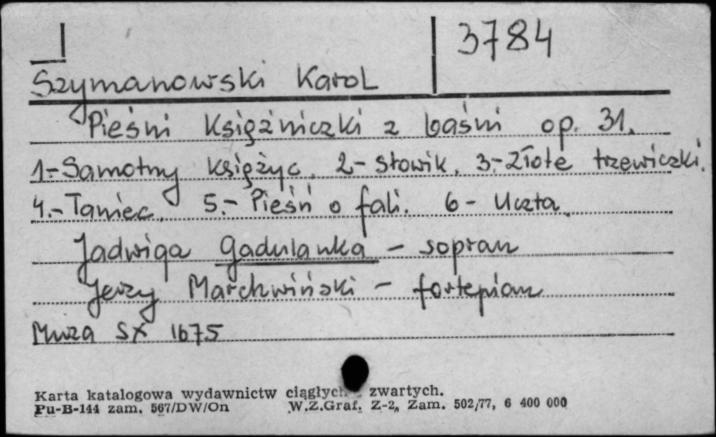 3784
Szymanowski Karol
Pieśni Księżniczki z baśni op. 31.
1.- Samotny księżyc. 2- Słowik. 3.- Złote trzewiczki.
4.- Taniec. 5.- Pieśń o fali. 6- Uczta.
Jadwiga Gadulanka - sopran
Jerzy Marchwiński - fortepian
Muza SX 1675
Karta katalogowa wydawnictw ciągłych zwartych.
Pu-B-144 zam. 567/DW/On W.Z.Graf. Z-2, Zam. 502/77, 6 400 000